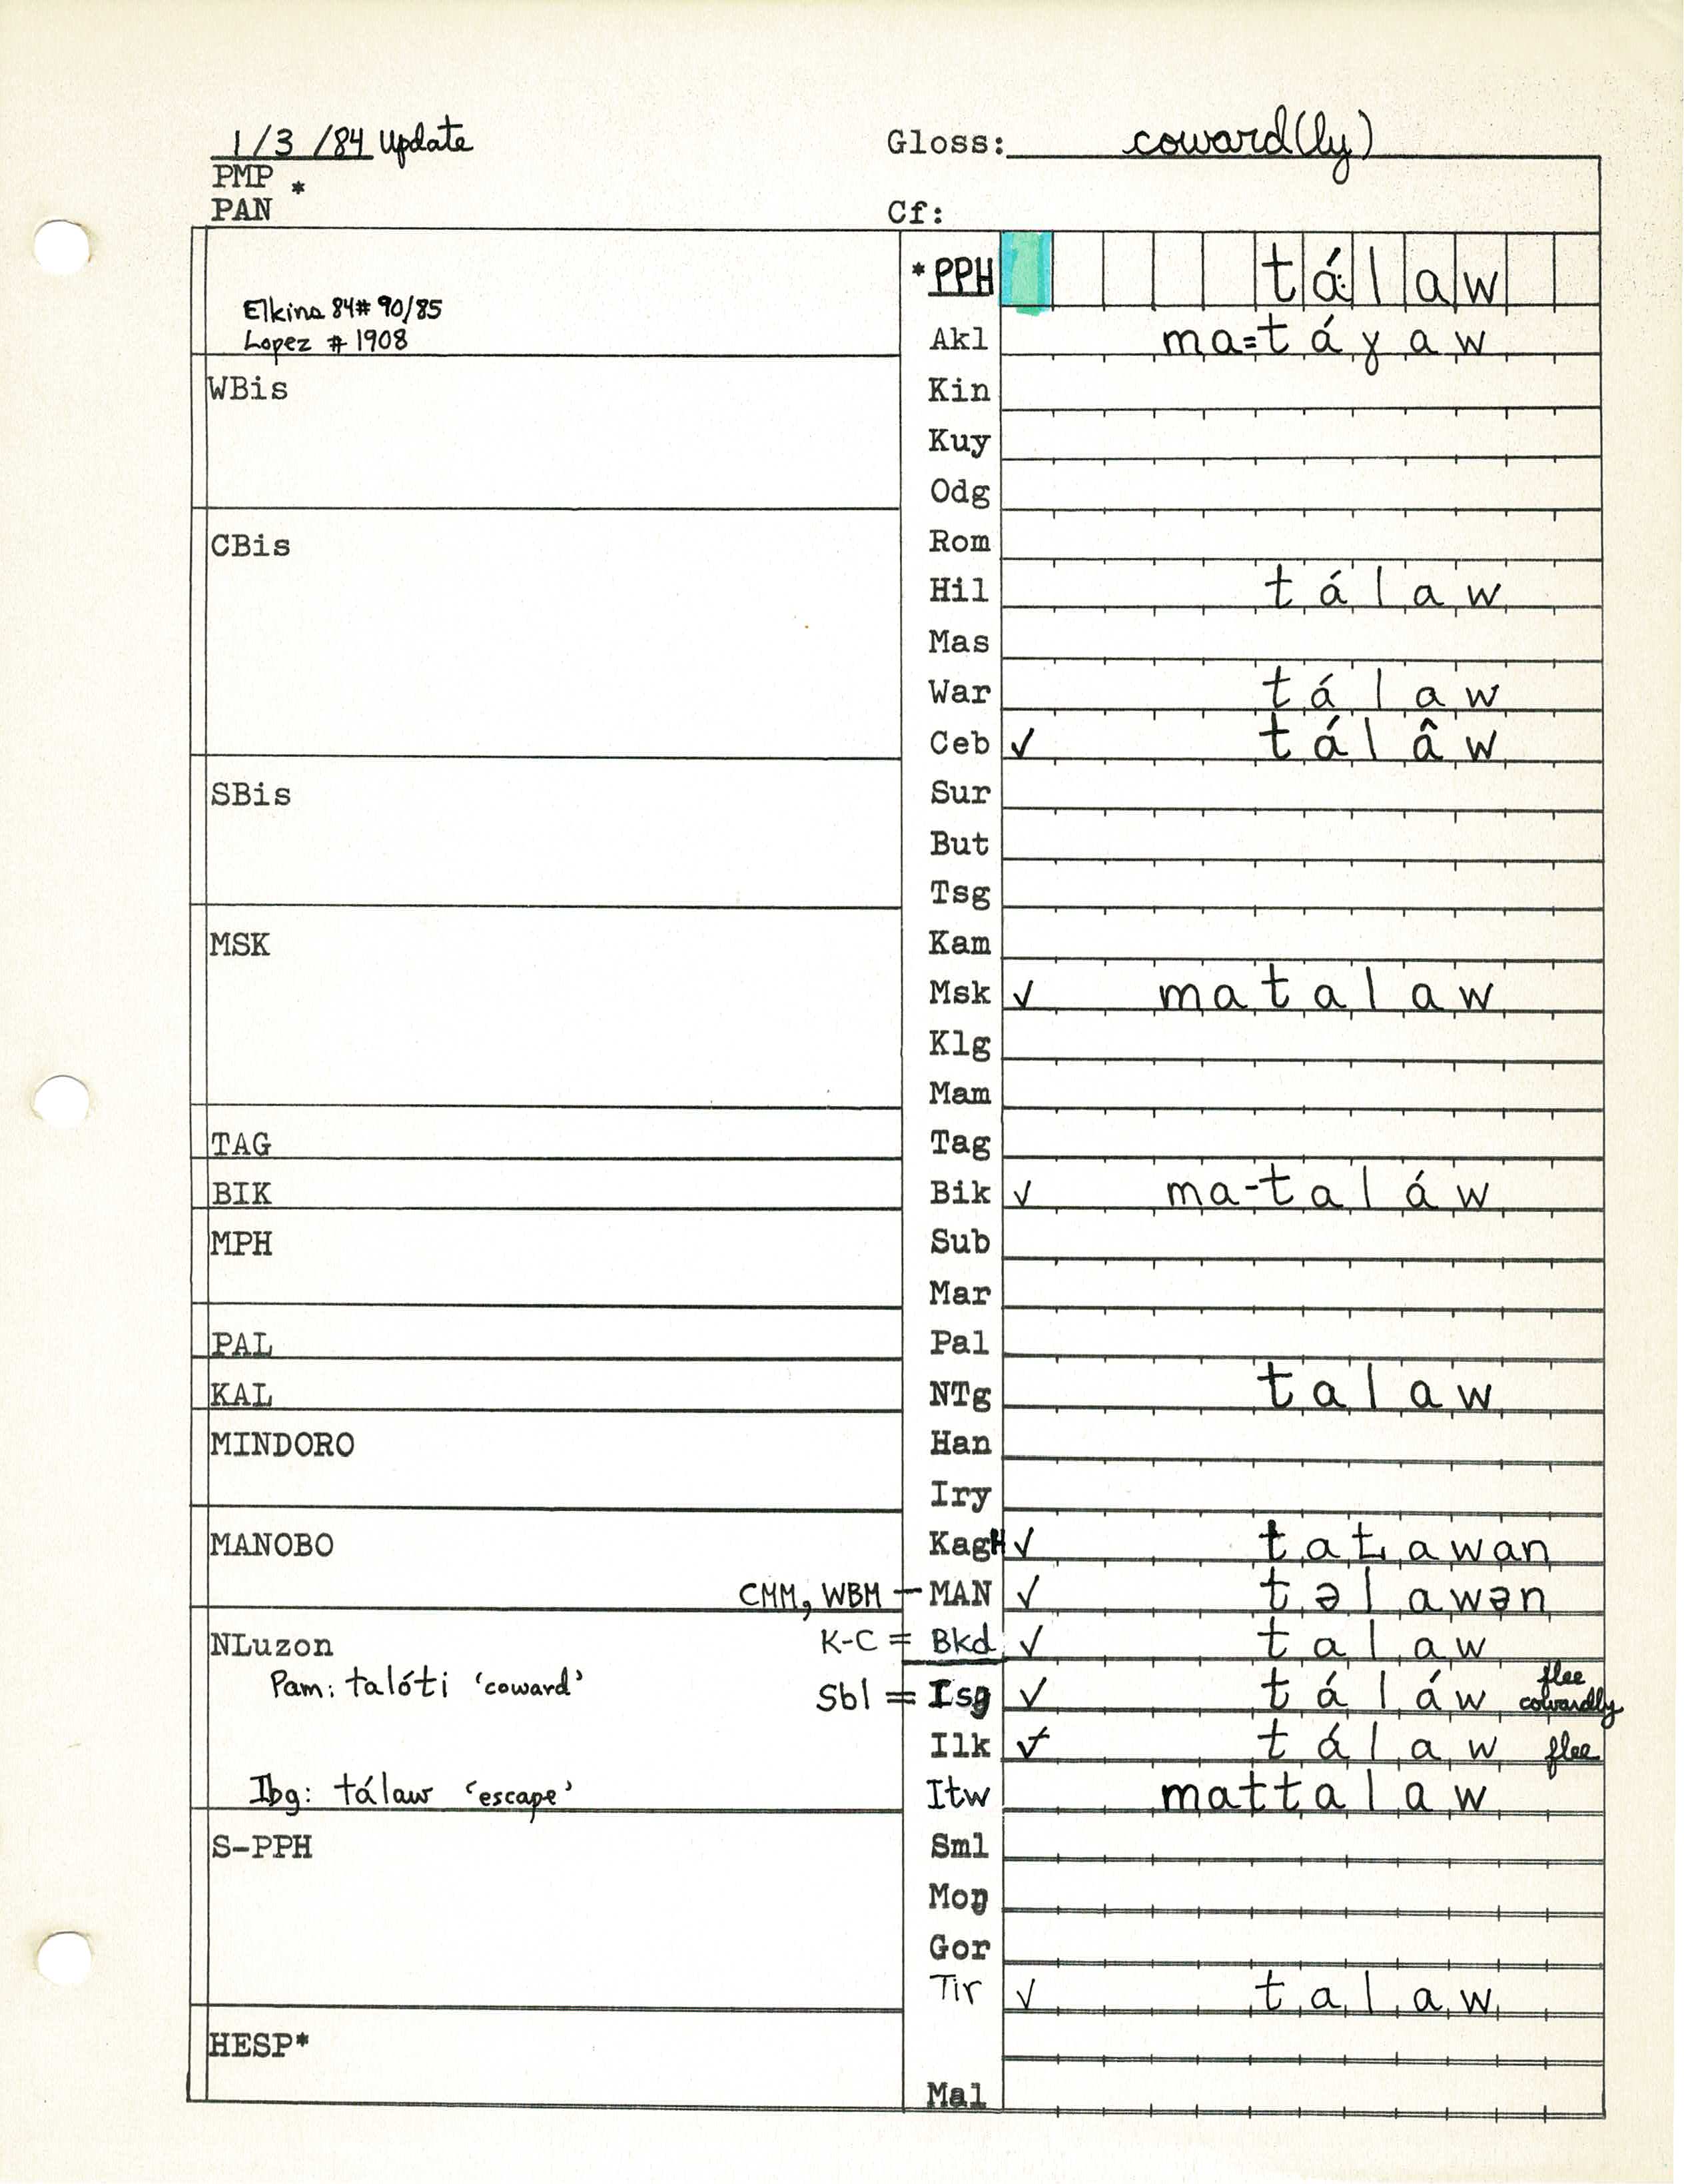 1/3/84 Update Gloss: coward(ly)
PMP *
PAN Cf:
*PPH tá:law
Elkins 84# 90/85
Lopez # 1908
Akl ma=táɣaw
WBis Kin
Kuy
Odg
CBis Rom
Hil tálaw
Mas
War tálaw
Ceb ✓ tálâw
SBis Sur
But
Tsg
MSK Kam
Msk ✓ matalaw
Klg
Mam
TAG Tag
BIK Bik ✓ ma-taláw
MPH Sub
Mar
PAL Pal
KAL NTg talaw
MINDORO Han
Iry
MANOBO KagH ✓
CMM, WBM – MAN ✓ təlawən
NLuzon K-C = Bkd ✓ talaw
Pam: talóti ‘coward’ Sbl = Isg ✓ táláw flee cowardly
Ilk ✓ tálaw flee
Ibg: tálaw ‘escape’ Itw mattalaw
S-PPH Sml
Moŋ
Gor
Tir ✓ talaw
HESP*
Mal